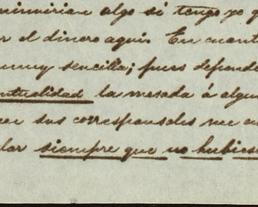 algo si tengo yo
el dinero aqui. En cuant
muy sencilla; pues depende
ntualidad la mesada á algun
sus corresponsales me
lar siempre que no hubies